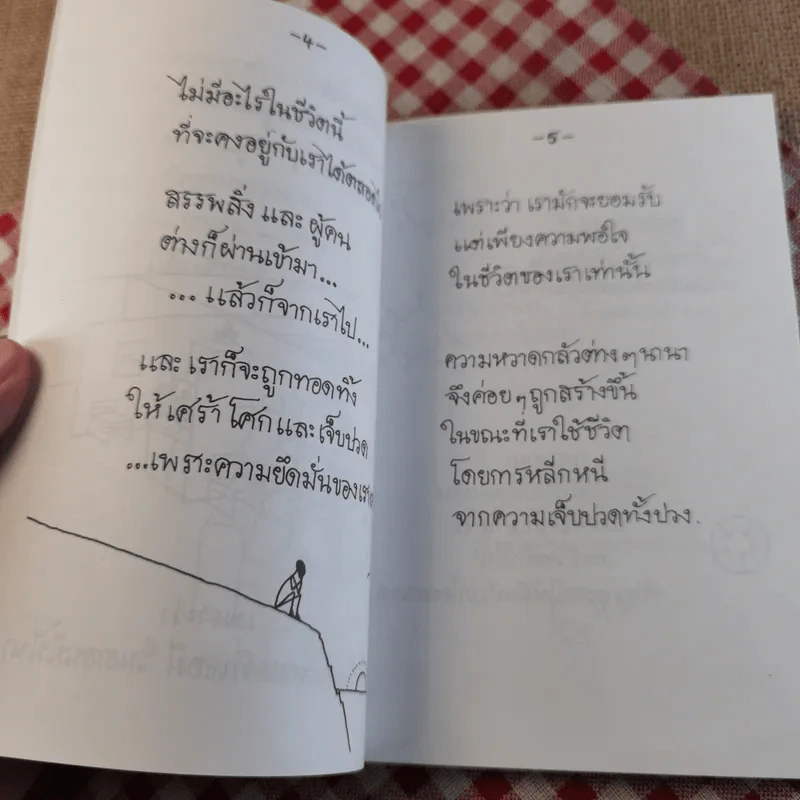 -4-
ไม่มีอะไรในชีวิตนี้
ที่จะคงอยู่กับเราได้ตลอดไป
สรรพสิ่ง และ ผู้คน
ต่างก็ผ่านเข้ามา...
... แล้วก็จากเราไป...
และ เราก็จะถูกทอดทิ้ง
ให้ เศร้า โศก และ เจ็บปวด
...เพราะความยึดมั่นของเรา
-5-
เพราะว่า เรามักจะยอมรับ
แต่เพียงความพอใจ
ในชีวิตของเราเท่านั้น
ความหวาดกลัวต่าง ๆ นานา
จึงค่อย ๆ ถูกสร้างขึ้น
ในขณะที่เราใช้ชีวิต
โดยการหลีกหนี
จากความเจ็บปวดทั้งปวง.